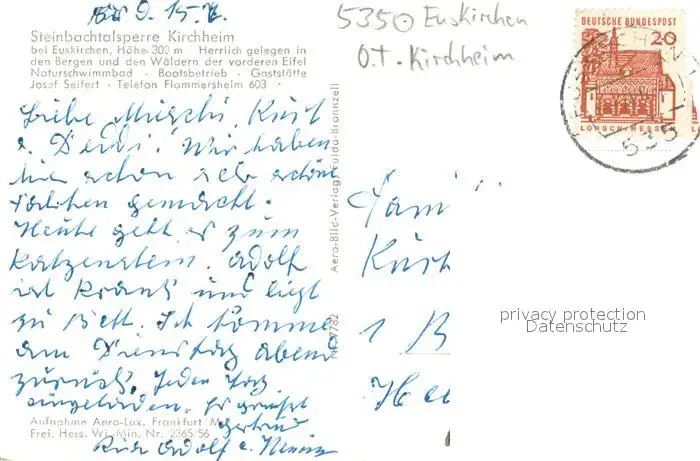 5350 Euskirchen
O.T. Kirchheim
DEUTSCHE BUNDESPOST
20
LORSCH/HESSEN
5351
Steinbachtalsperre Kirchheim
bei Euskirchen, Höhe 300 m Herrlich gelegen in
den Bergen und den Wäldern der vorderen Eifel
Naturschwimmbad · Bootsbetrieb · Gaststätte
Josef Seifert · Telefon Flammersheim 603
Liebe Kurt
Wir haben
hier schon sehr schöne
gemacht.
Heute geht es zum
Katzenstein. Adolf
ist krank und liegt
zu Bett. Ich komme
am Dienstag abend
zurück. Jeden Tag
eingeladen. Es grüßt
Gertrud
Adolf u.
Aufnahme Aero-Lux, Frankfurt M
Frei. Hess. Wi. Min. Nr. 2365/56
Aero-Bild-Verlag Fulda-Bronnzell
Nr. 7782
Fam
Kurt
1 B
privacy protection
Datenschutz